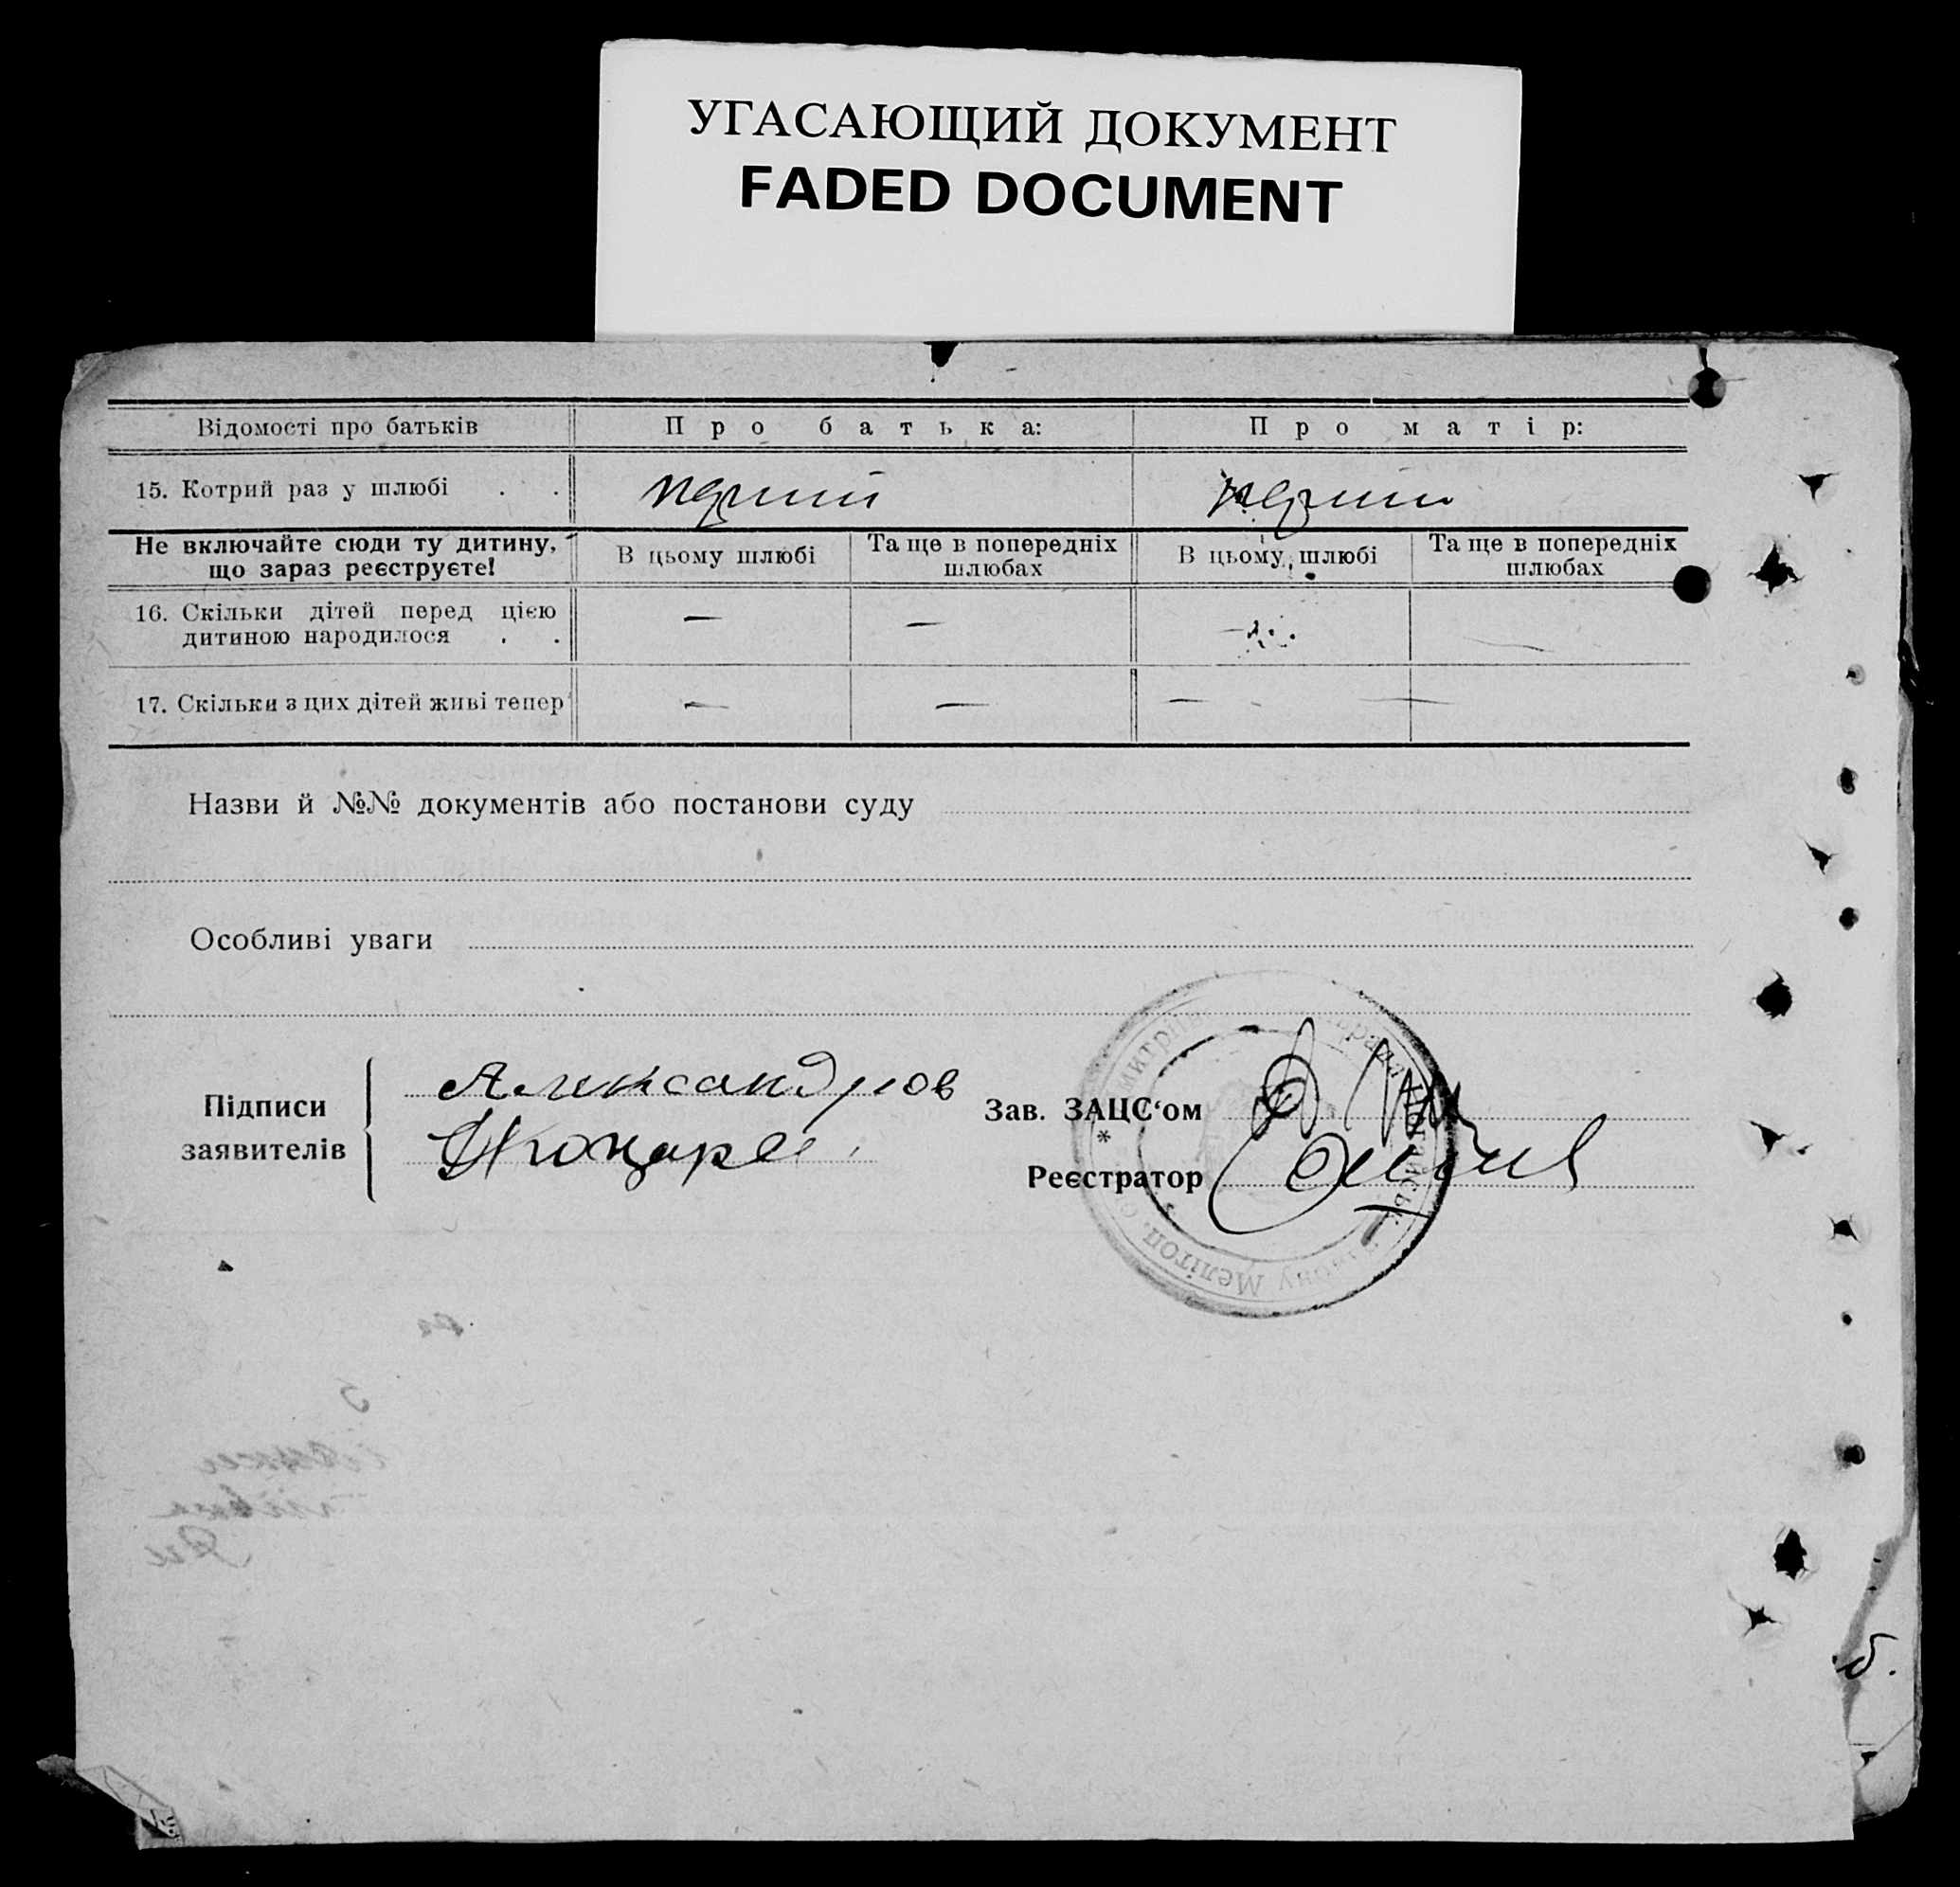 УГАСАЮЩИЙ ДОКУМЕНТ
FADED DOCUMENT
Відомості про батьків Про батька: Про матір:
15. Котрий раз у шлюбі . . перший перший
Не включайте сюди ту дитину, що зараз реєструєте! В цьому шлюбі Та ще в попередніх шлюбах В цьому шлюбі Та ще в попередніх шлюбах
16. Скільки дітей перед цією — — —
дитиною народилося . .
17. Скільки з цих дітей живі тепер — — — —
Назви й №№ документів або постанови суду
Особливі уваги
Підписи заявителів
Александров
Зав. ЗАЦС‘ом
Реєстратор
району Мелітоп.
б.